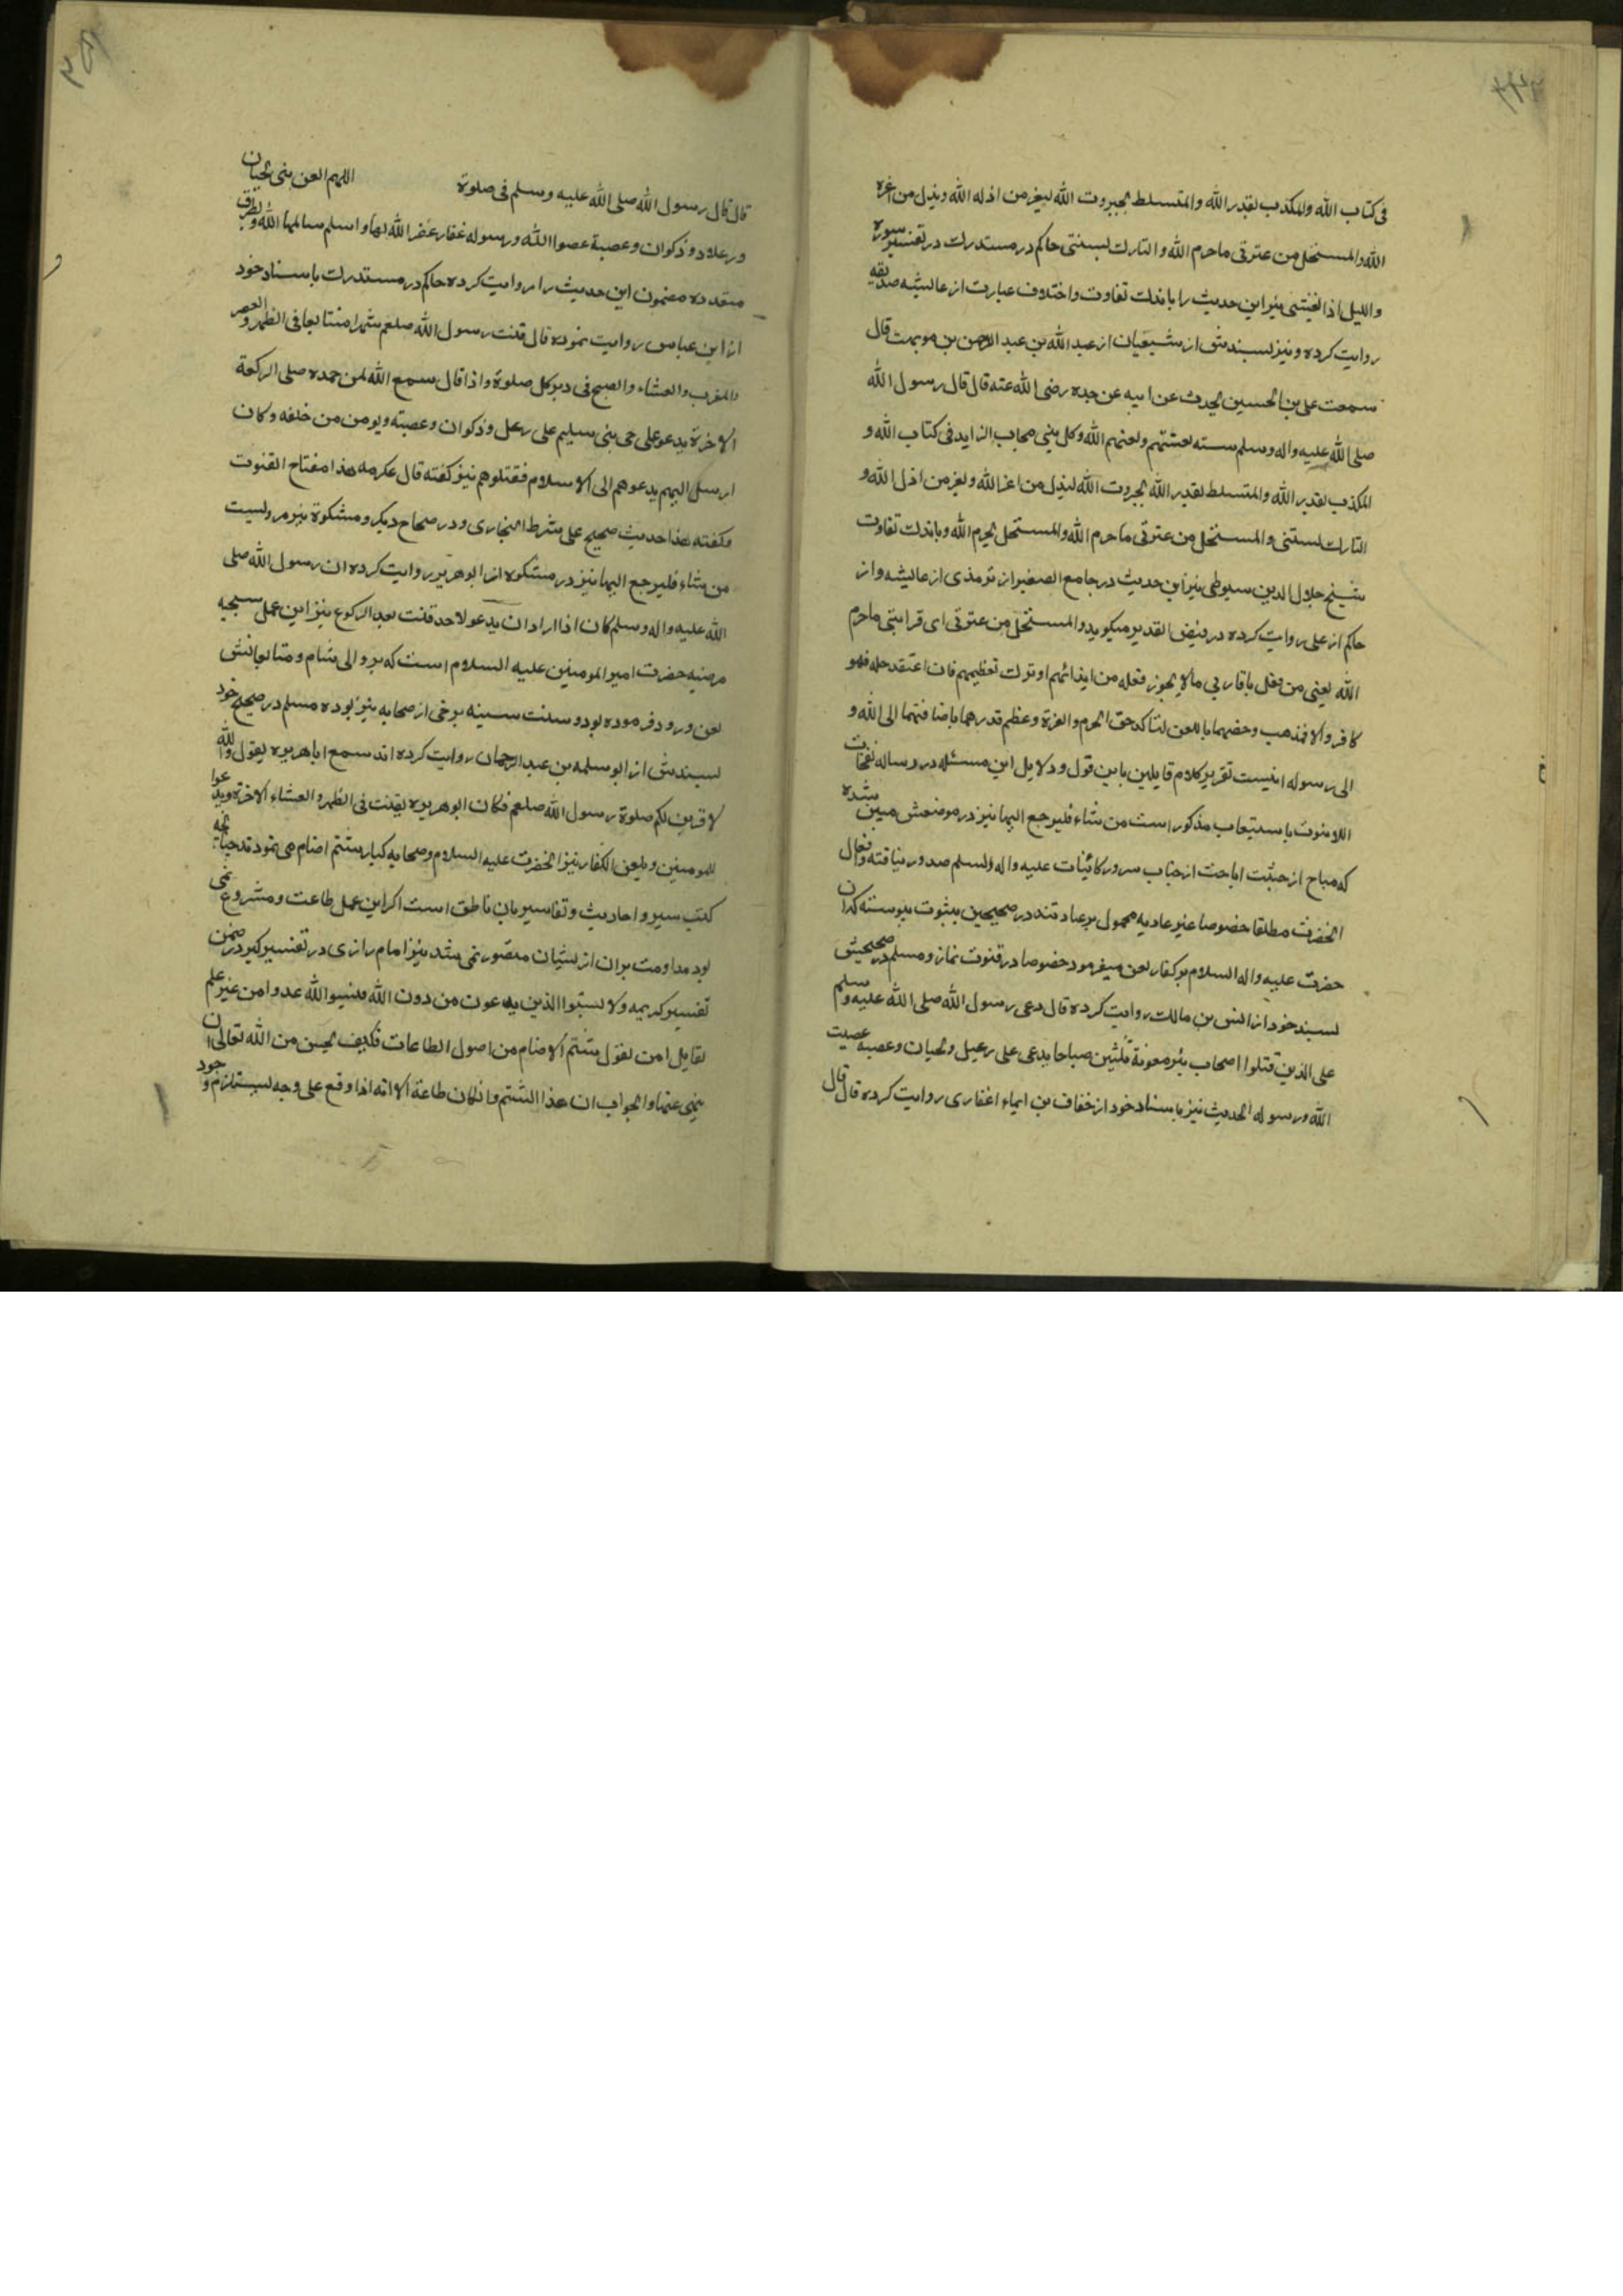 فی کتاب الله والمکذب بقدر الله والمتسلط بجبروت الله لیعز من اذله الله ویذل من اعزه
الله والمستحل من عترتی ماحرم الله والتارک لسنتی حاکم در مستدرک در تفسیر سوره
واللیل اذا یغشی نیز این حدیث را باندک تفاوت واختلاف عبارت از عایشه صدیقه
روایت کرده ونیز بسندش از شیعیان از عبد الله بن عبد الرحمن بن موهب قال
سمعت علی بن الحسین یحدث عن ابیه عن جده رضی الله عنه قال قال رسول الله
صلی الله علیه واله وسلم سته لعنتهم ولعنهم الله وکل نبی مجاب الزاید فی کتاب الله و
المکذب بقدر الله والمتسلط بقدر الله بجبروت الله لیذل من اعز الله ولیعز من اذل الله و
التارک لسنتی والمستحل من عترتی ماحرم الله والمستحل لحرم الله وباندک تفاوت
شیخ جلال الدین سیوطی نیز این حدیث در جامع الصغیر از ترمذی از عایشه واز
حاکم از علی روایت کرده در فیض القدیر میکوید والمستحل من عترتی ای قرابتی ماحرم
الله یعنی من فعل باقاربی مالا یجوز فعله من ایذائهم او ترک تعظیمهم فان اعتقد حله فهو
کافر والا فمذهب وخصهما باللعن لتاکد حق الحرم والعزة وعظم قدرهما باضافتهما الی الله و
الی رسوله اینست تقریر کلام قایلین باین قول ودلایل این مسئله در رساله نفحات
اللاهوت باستیعاب مذکور است من شاء فلیرجع الیها نیز در موضعش مبین شده
که مباح از حیثیت اباحت از جناب سرور کائنات علیه واله والسلم صدور نیافته وافعال
انحضرت مطلقا خصوصا غیر عادیه محمول بر عبادتند در صحیحین بثبوت پیوسته که ان
حضرت علیه واله السلام بر کفار لعن میفرمود خصوصا در قنوت نماز ومسلم در صحیحش
بسند خود از انس بن مالک روایت کرده قال دعی رسول الله صلی الله علیه وسلم
علی الذین قتلوا اصحاب بئر معونة ثلثین صباحا یدعی علی رعیل ولحیان وعصیه عصیت
الله ورسوله الحدیث نیز باسناد خود از خفاف بن ایماء اغفاری روایت کرده قال قال
قال قال رسول الله صلی الله علیه وسلم فی صلوة اللهم العن بنی لحیان
ورعلا وذکوان وعصیة عصوا الله ورسوله غفار غفر الله لها واسلم سالمها الله وبطرق
متعدده مضمون این حدیث را روایت کرده حاکم در مستدرک باسناد خود
از ابن عباس روایت نموده قال قنت رسول الله صلعم شهرا متتابعا فی الظهر والعصر
والمغرب والعشاء والصبح فی دبر کل صلوة واذا قال سمع الله لمن حمده صلی الرکعة
الاخرة یدعو علی حی بنی سلیم علی رعل وذکوان وعصیته ویومن من خلفه وکان
ارسل الیهم یدعوهم الی الاسلام فقتلوهم نیز کفته قال عکرمه هذا مفتاح القنوت
وکفته هذا حدیث صحیح علی شرط البخاری ودر صحاح دیکر ومشکوة نیز مرویست
من شاء فلیرجع الیها نیز در مشکوه از ابو هریره روایت کرده ان رسول الله صلی
الله علیه واله وسلم کان اذا اراد ان یدعو لاحد قنت بعد الرکوع نیز این عمل سجیه
مرضیه حضرت امیر المومنین علیه السلام است که بر والی شام ومتابعانش
لعن ورود فرموده بود وسنت سنیه برخی از صحابه نیز بوده مسلم در صحیح خود
بسندش از ابو سلمه بن عبد الرحمان روایت کرده اند سمع ابا هریره یقول والله
لاقربن لکم صلوة رسول الله صلعم فکان ابو هریره یقنت فی الظهر والعشاء الاخرة ویدعوا
للمومنین ویلعن الکفار نیز انحضرت علیه السلام وصحابه کبار شتم اصنام می نمودند چنانچه
کتب سیر واحادیث وتفاسیر بان ناطق است اکر این عمل طاعت ومشروع نمی
بود مداومت بران از ایشان متصور نمی شد نیز امام رازی در تفسیر کبیر در ضمن
تفسیر کریمه ولا تسبوا الذین یدعون من دون الله فیسبوا الله عدوا من غیر علم
لقایل امن یقول شتم الاصنام من اصول الطاعات فکیف یحسن من الله تعالی ان
ینهی عنها والجواب ان هذا الشتم وانکان طاعة الا انه اذا وقع علی وجه یستلزم وجود